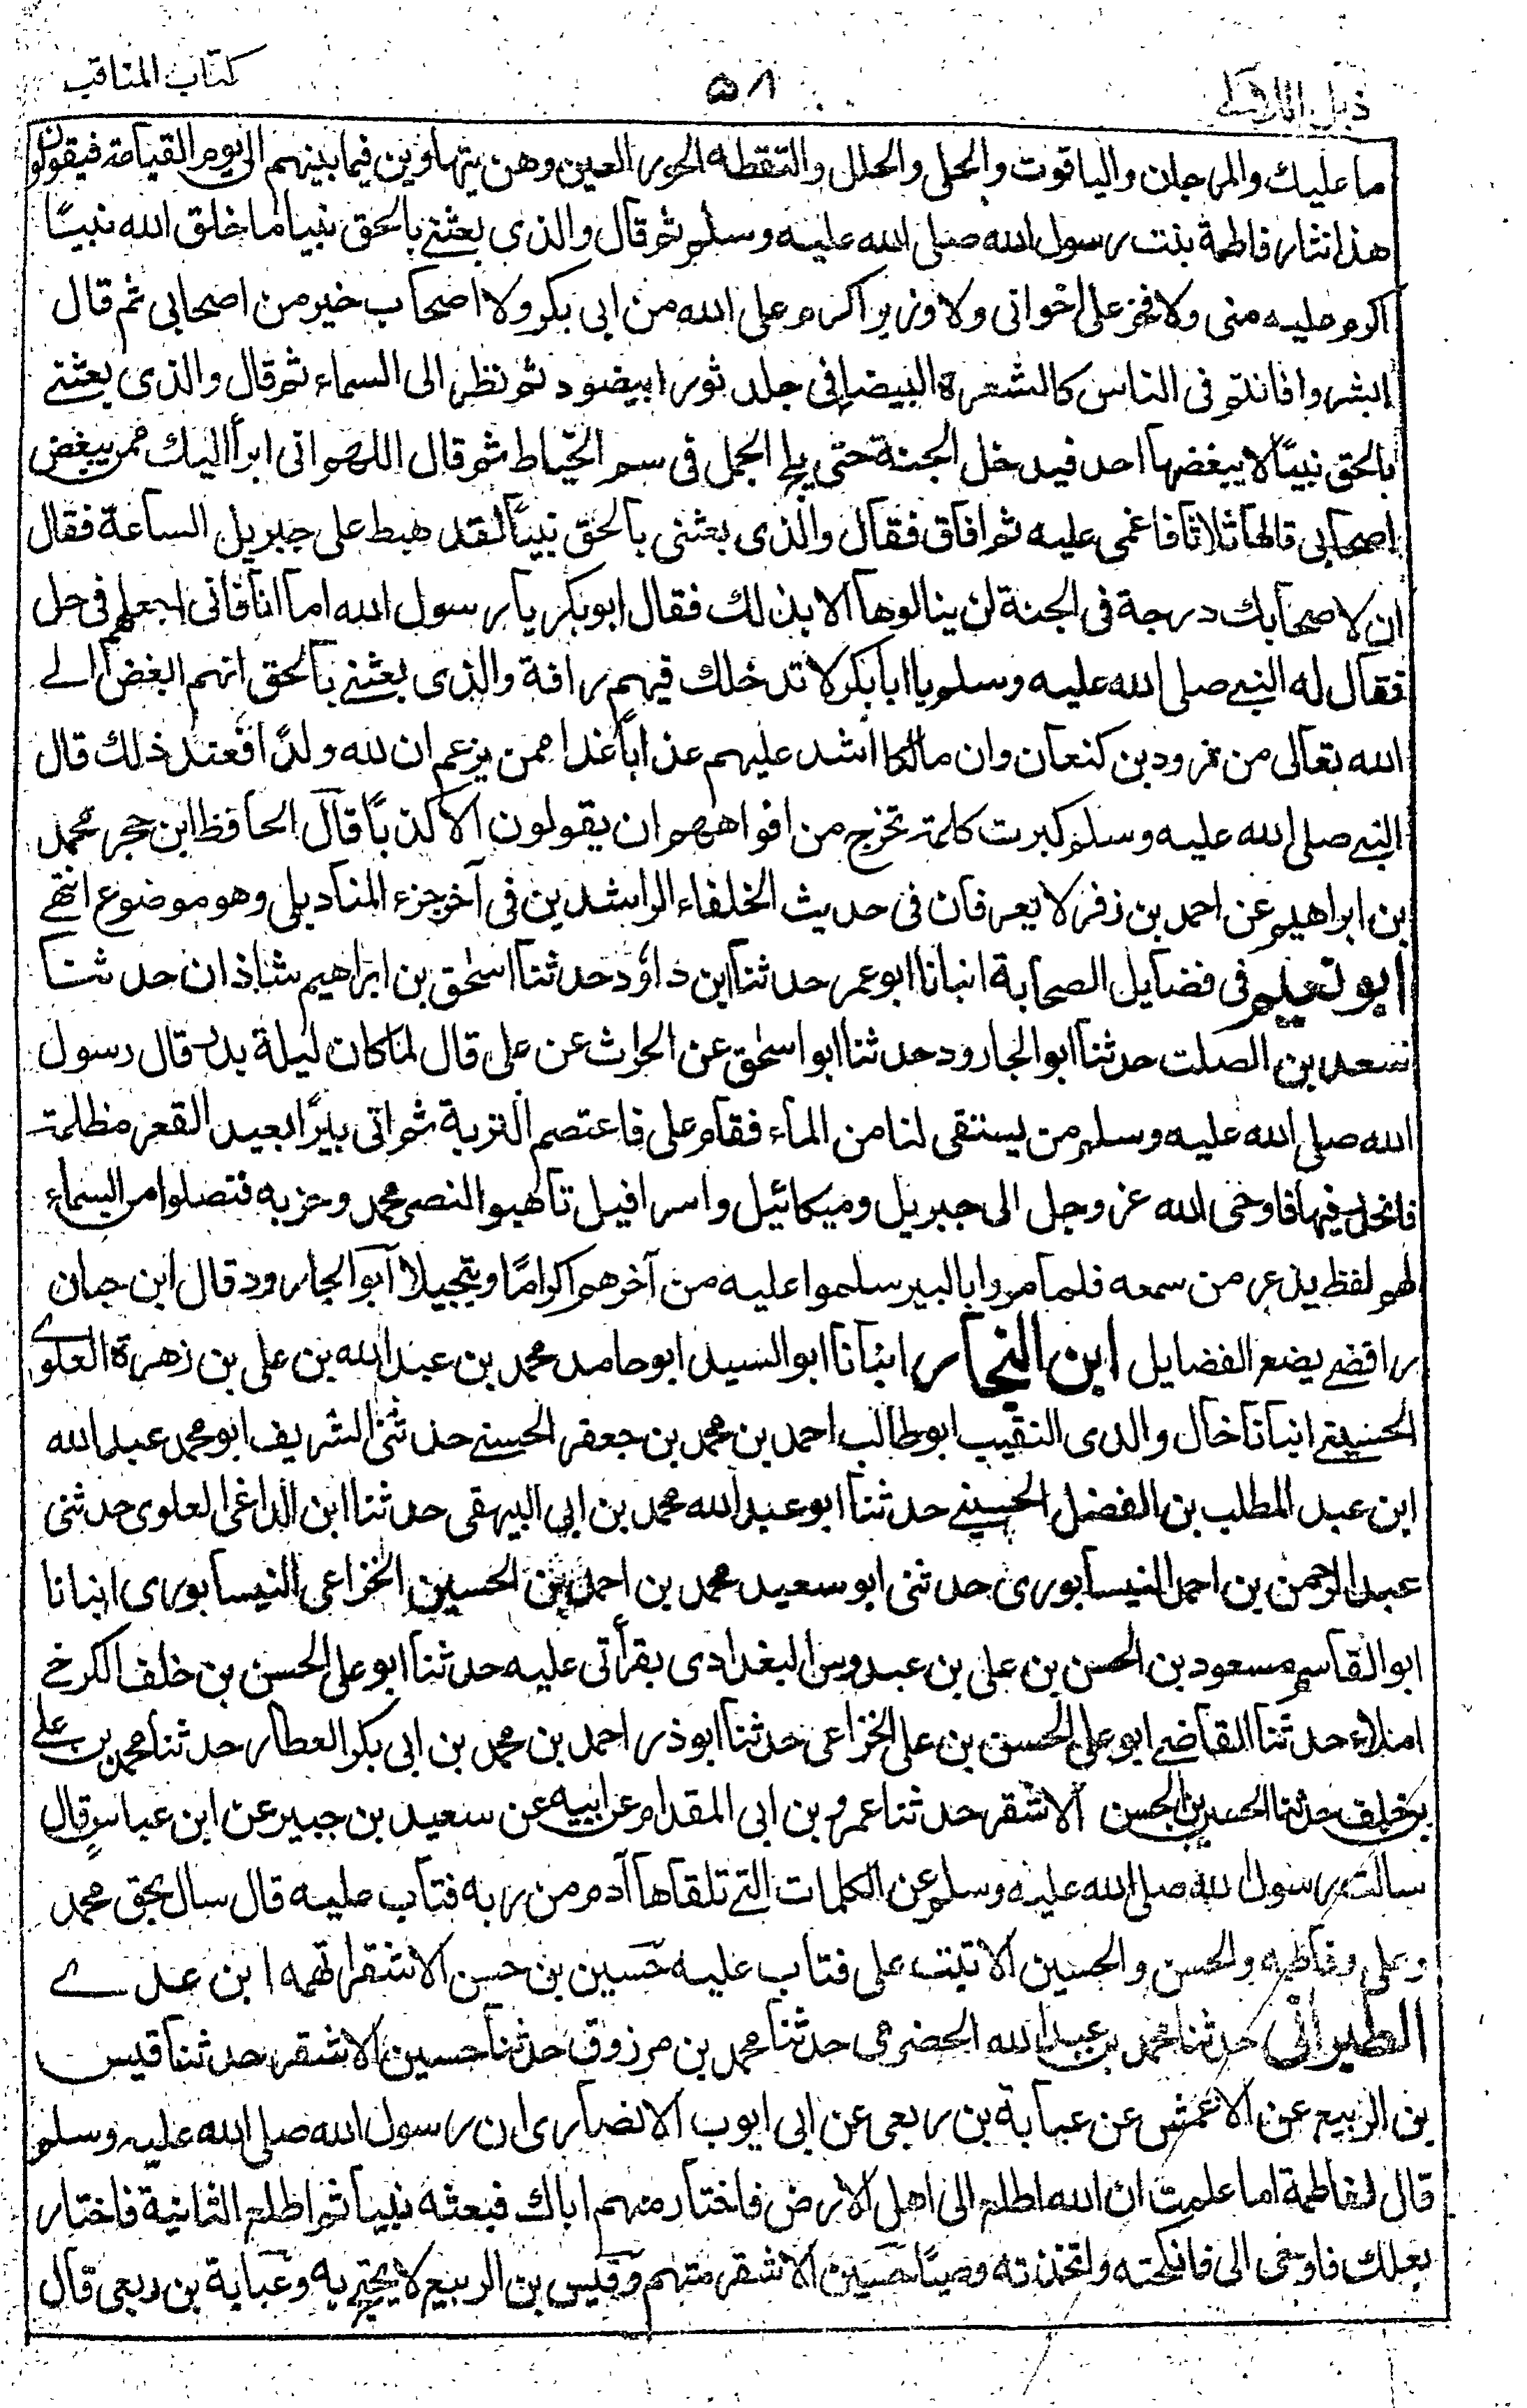 ذيل اللآلي
۵۸
كتاب المناقب
ما عليك والمرجان والياقوت والحلى والحلل والتقطه الحور العين وهن يتهاوين فيما بينهم الى يوم القيامة فيقولون
هذا نثار فاطمة بنت رسول الله صلى الله عليه وسلم ثم قال والذى بعثنے بالحق نبيا ما خلق الله نبيًا
اكرم عليه منى ولا فخر على اخوانى ولا وزير اكرم على الله من ابى بكر ولا اصحاب خير من اصحابى ثم قال
ابشروا فانتم فى الناس كالشعرة البيضا فى جلد ثور ابيضود ثم نظر الى السماء ثم قال والذى بعثنے
بالحق نبيًا لا يبغضها احد فيدخل الجنة حتى يلج الجمل فى سم الخياط ثم قال اللهم انى ابرأ اليك ممن يبغض
اصحابى قالها ثلاثا فاغمى عليه ثم افاق فقال والذى بعثنى بالحق نبيًا لقد هبط على جبريل الساعة فقال
ان لاصحابك درجة فى الجنة لن ينالوها الا بذلك فقال ابو بكر يا رسول الله اما انا فانى اجعلهم فى حل
فقال له النبے صلى الله عليه وسلم يا ابا بكر لا تدخلك فيهم رافة والذى بعثنے بالحق انهم ابغض الے
الله تعالى من نمرود بن كنعان وان مالكا اشد عليهم عذابًا غدا ممن يزعم ان لله ولدًا فعند ذلك قال
النبے صلى الله عليه وسلم كبرت كلمة تخرج من افواههم ان يقولون الا كذبًا قال الحافظ ابن حجر محمد
بن ابراهيم عن احمد بن زفر لا يعرفان فى حديث الخلفاء الراشدين فى آخر جزء المناديلى وهو موضوع انتهے
ابو نعيم فى فضايل الصحابة انبانا ابو عمر حدثنا ابن داؤد حدثنا اسحٰق بن ابراهيم شاذان حدثنا
سعد بن الصلت حدثنا ابو الجارود حدثنا ابو اسحٰق عن الحراث عن على قال لما كان ليلة بدر قال رسول
الله صلى الله عليه وسلم من يستقى لنا من الماء فقام على فاعتصم القربة ثم اتى بيرًا بعيد القعر مظلمة
فانحدر فيها فاوحى الله عز وجل الى جبريل وميكائيل واسرافيل تاهبوا لنصر محمد وحزبه فتصلوا من السماء
لهم لفظ يذعر من سمعه فلما مروا بالبير سلموا عليه من آخرهم اكرامًا وتبجيلا ابو الجارود قال ابن حبان
رافضے يضع الفضايل ابن النجار انبانا ابو السيد ابو حامد محمد بن عبد الله بن على بن زهرة العلوے
الحسينے انبانا خال والدى النقيب ابو طالب احمد بن محمد بن جعفر الحسنے حدثنى الشريف ابو محمد عبد الله
ابن عبد المطلب بن الفضل الحسينے حدثنا ابو عبد الله محمد بن ابى البيهقى حدثنا ابن الداغى العلوى حدثنى
عبد الرحمن بن احمد النيسابورى حدثنى ابو سعيد محمد بن احمد بن الحسين الخزاعى النيسابورى انبانا
ابو القاسم مسعود بن الحسن بن على بن عبدوس البغدادى بقرأتى عليه حدثنا ابو على الحسن بن خلف الكرخے
املاء حدثنا القاضے ابو على الحسن بن على الخزاعى حدثنا ابوذر احمد بن محمد بن ابى بكر العطار حدثنا محمد بن علے
بن خلف حدثنا الحسين بن الحسن الاشقر حدثنا عمرو بن ابى المقدام عن ابيه عن سعيد بن جبير عن ابن عباس قال
سالت رسول الله صلى الله عليه وسلم عن الكلمات التے تلقاها آدم من ربه فتاب عليه قال سال بحق محمد
وعلى وفاطمة والحسن والحسين الا تبت على فتاب عليه حسين بن حسن الاشقر اتهمه ابن عدے
الطبرانى حدثنا محمد بن عبد الله الحضرمى حدثنا محمد بن مرزوق حدثنا حسين الاشقر حدثنا قيس
بن الربيع عن الاعمش عن عباية بن ربعى عن ابى ايوب الانصارى ان رسول الله صلى الله عليه وسلم
قال لفاطمة اما علمت ان الله اطلع الى اهل الارض فاختار منهم اباك فبعثه نبيا ثم اطلع الثانية فاختار
بعلك فاوحى الى فانكحته واتخذته وصيًا حسين الاشقر متهم وقيس بن الربيع لا يحتج به وعباية بن ربعى قال